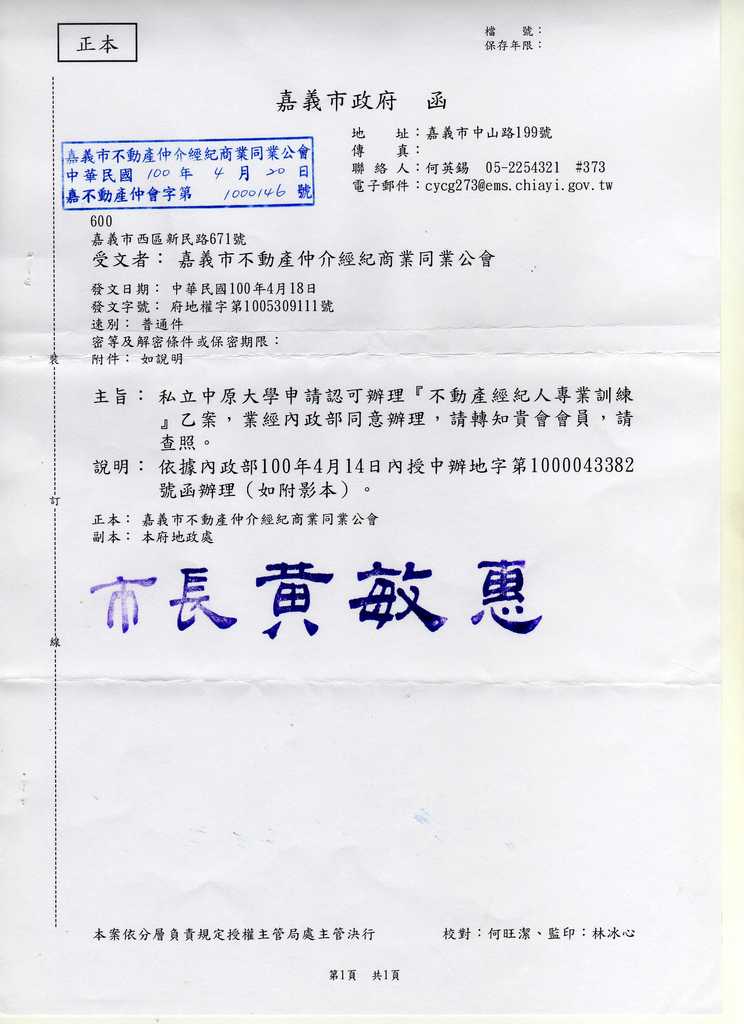 正本
檔　　號：
保存年限：
嘉義市政府　函
地　　址：嘉義市中山路199號
傳　　真：
聯 絡 人：何英錫　05-2254321　#373
電子郵件：cycg273@ems.chiayi.gov.tw
嘉義市不動產仲介經紀商業同業公會
中華民國 100 年 4 月 20 日
嘉不動產仲會字第 1000146 號
600
嘉義市西區新民路671號
受文者： 嘉義市不動產仲介經紀商業同業公會
發文日期： 中華民國100年4月18日
發文字號： 府地權字第1005309111號
速別： 普通件
密等及解密條件或保密期限：
附件： 如說明
主旨： 私立中原大學申請認可辦理『不動產經紀人專業訓練
』乙案，業經內政部同意辦理，請轉知貴會會員，請
查照。
說明： 依據內政部100年4月14日內授中辦地字第1000043382
號函辦理（如附影本）。
正本： 嘉義市不動產仲介經紀商業同業公會
副本： 本府地政處
市長黃敏惠
裝
訂
線
本案依分層負責規定授權主管局處主管決行
校對：何旺潔、監印：林冰心
第1頁　共1頁